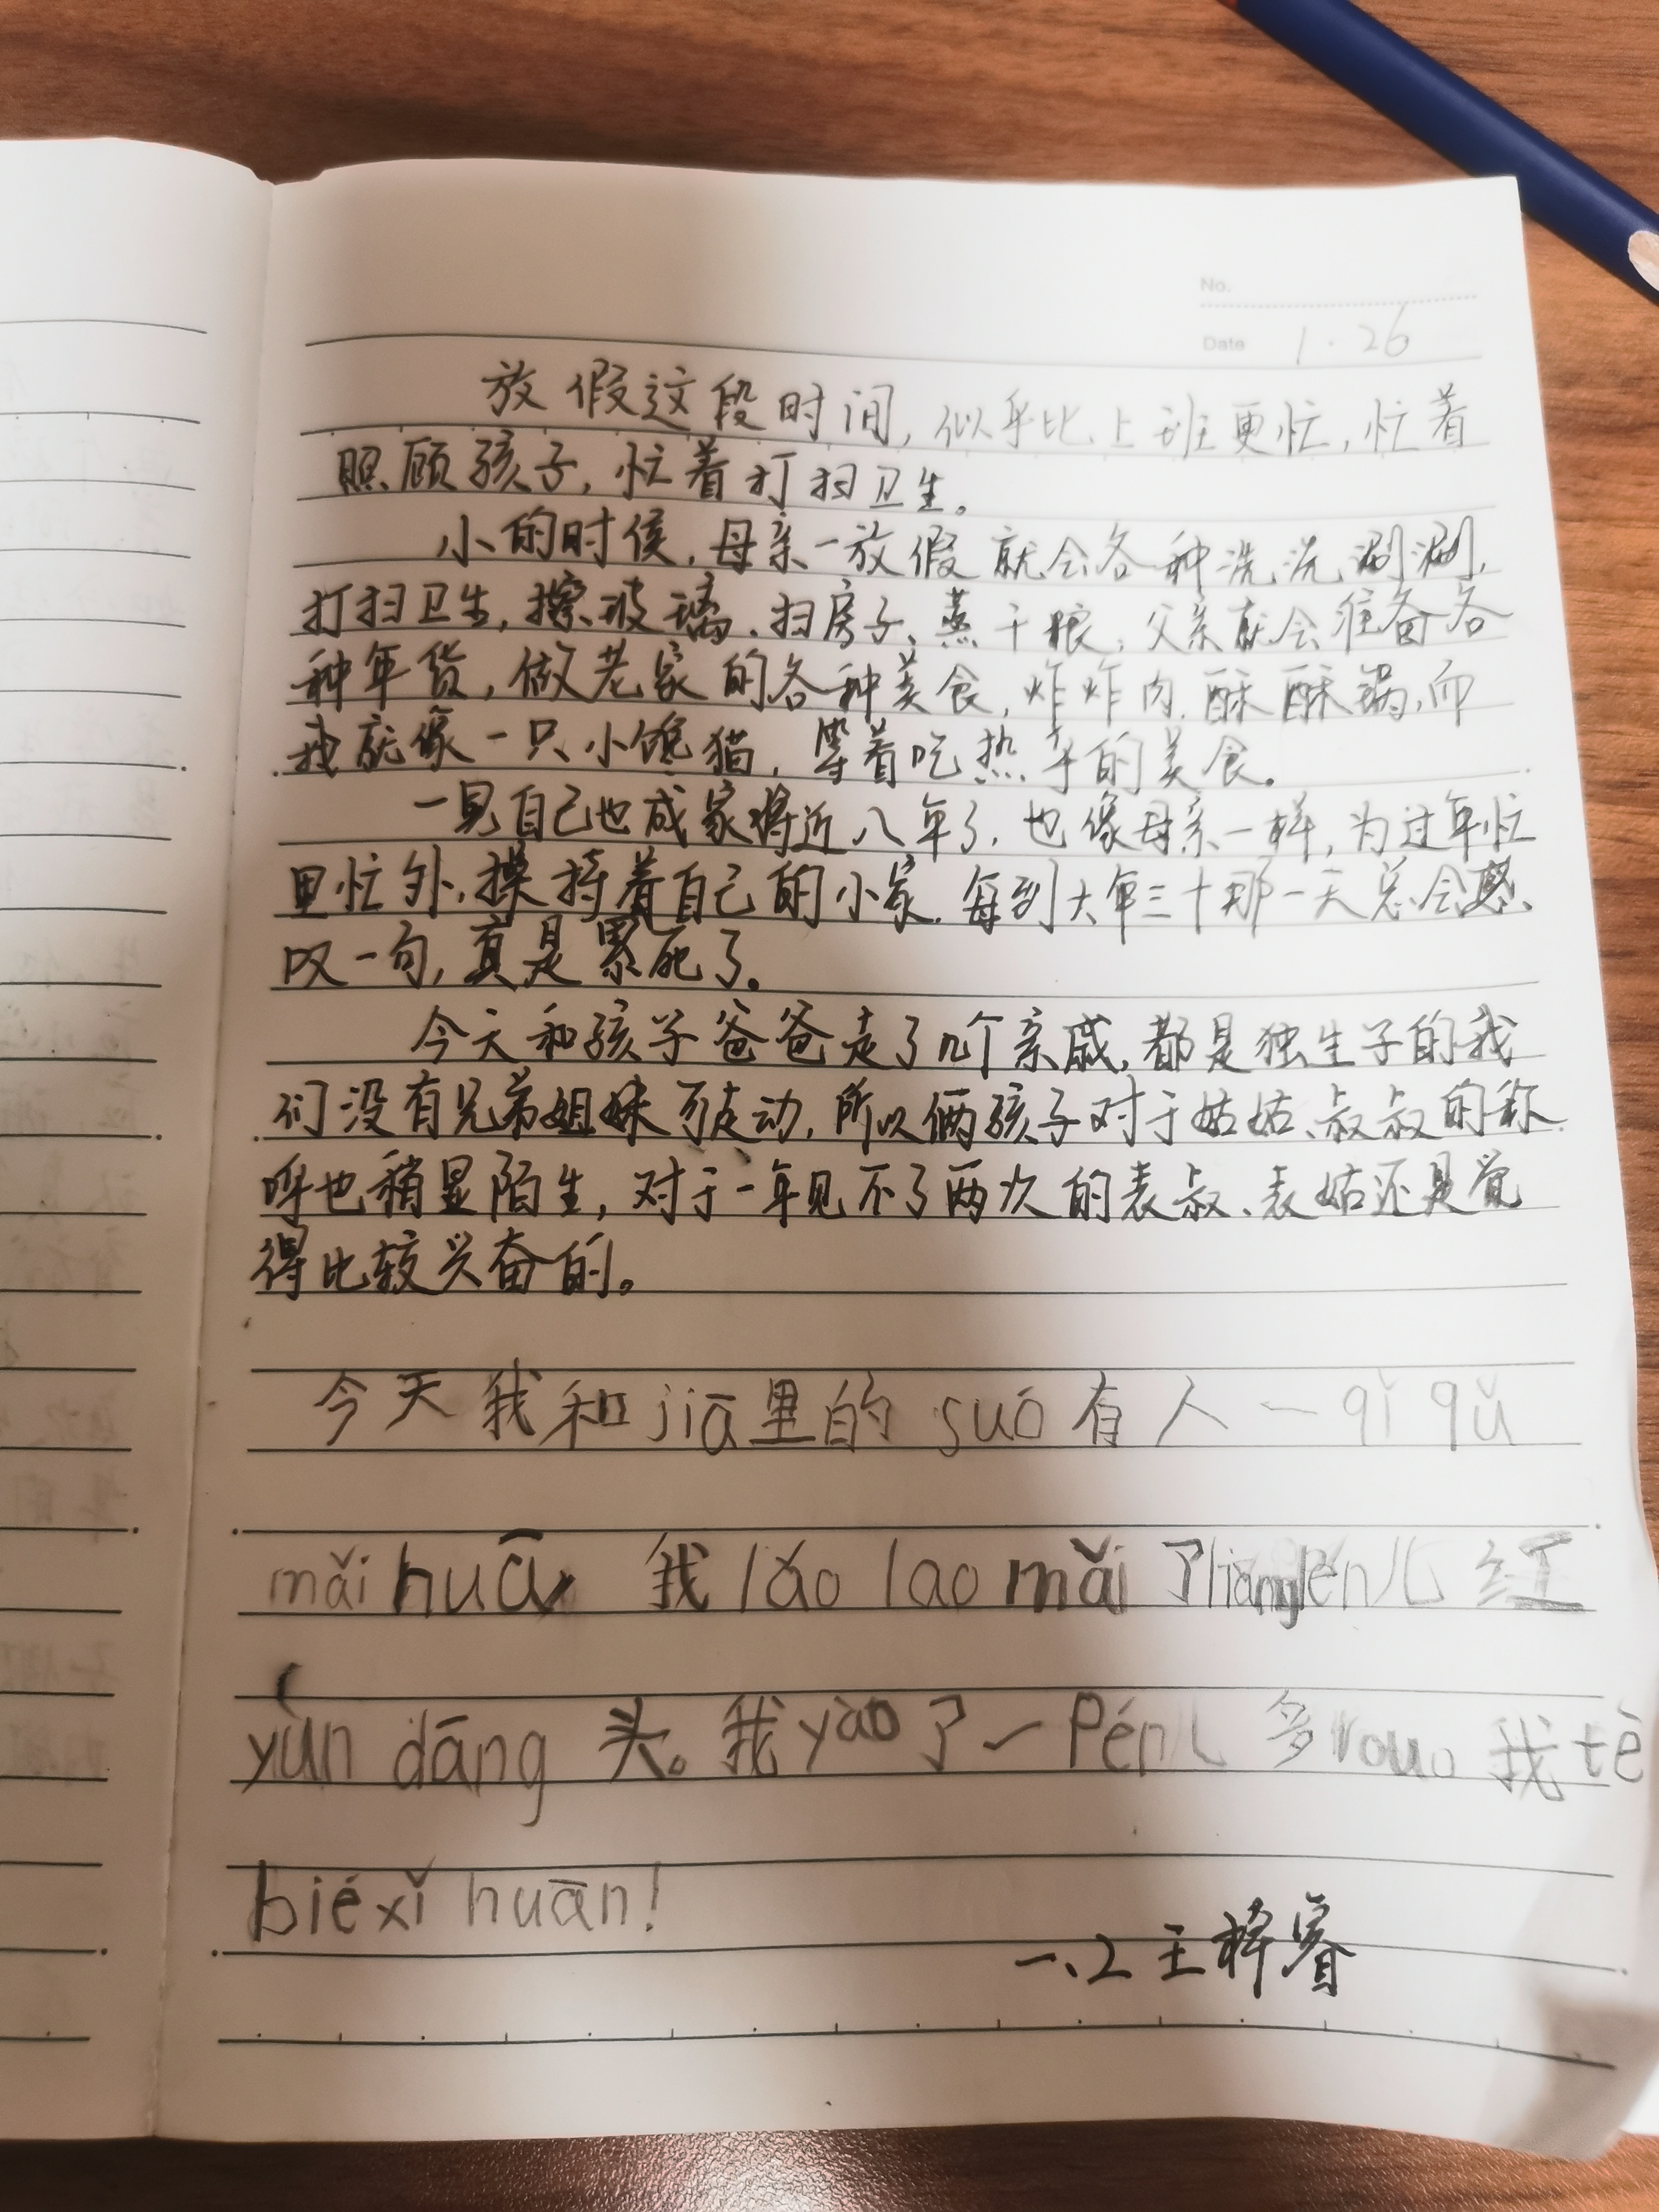 No.
Date 1.26
放假这段时间,似乎比上班更忙,忙着
照顾孩子,忙着打扫卫生。
小的时候,母亲一放假就会各种洗洗涮涮,
打扫卫生,擦玻璃、扫房子、蒸干粮,父亲就会准备各
种年货,做老家的各种美食,炸炸肉、酥酥锅,而
我就像一只小馋猫,等着吃热乎的美食。
一晃自己也成家将近八年了,也像母亲一样,为过年忙
里忙外,操持着自己的小家。每到大年三十那一天总会感
叹一句,真是累死了。
今天和孩子爸爸走了几个亲戚,都是独生子的我
们没有兄弟姐妹可走动,所以俩孩子对于姑姑、叔叔的称
呼也稍显陌生,对于一年见不了两次的表叔、表姑还是觉
得比较兴奋的。
今天我和jiā里的suǒ有人一qǐ qǔ
mǎi huā,我lǎo lao mǎi了liǎng pén儿红
yùn dāng头。我yào了一Pén儿多rou。我tè
bié xǐ huān!
一、2 王释睿